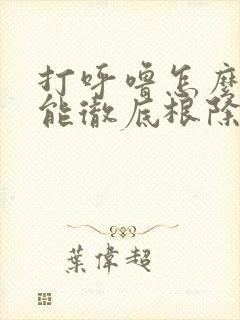 打呼噜怎麼
能徹底根除
葉偉超